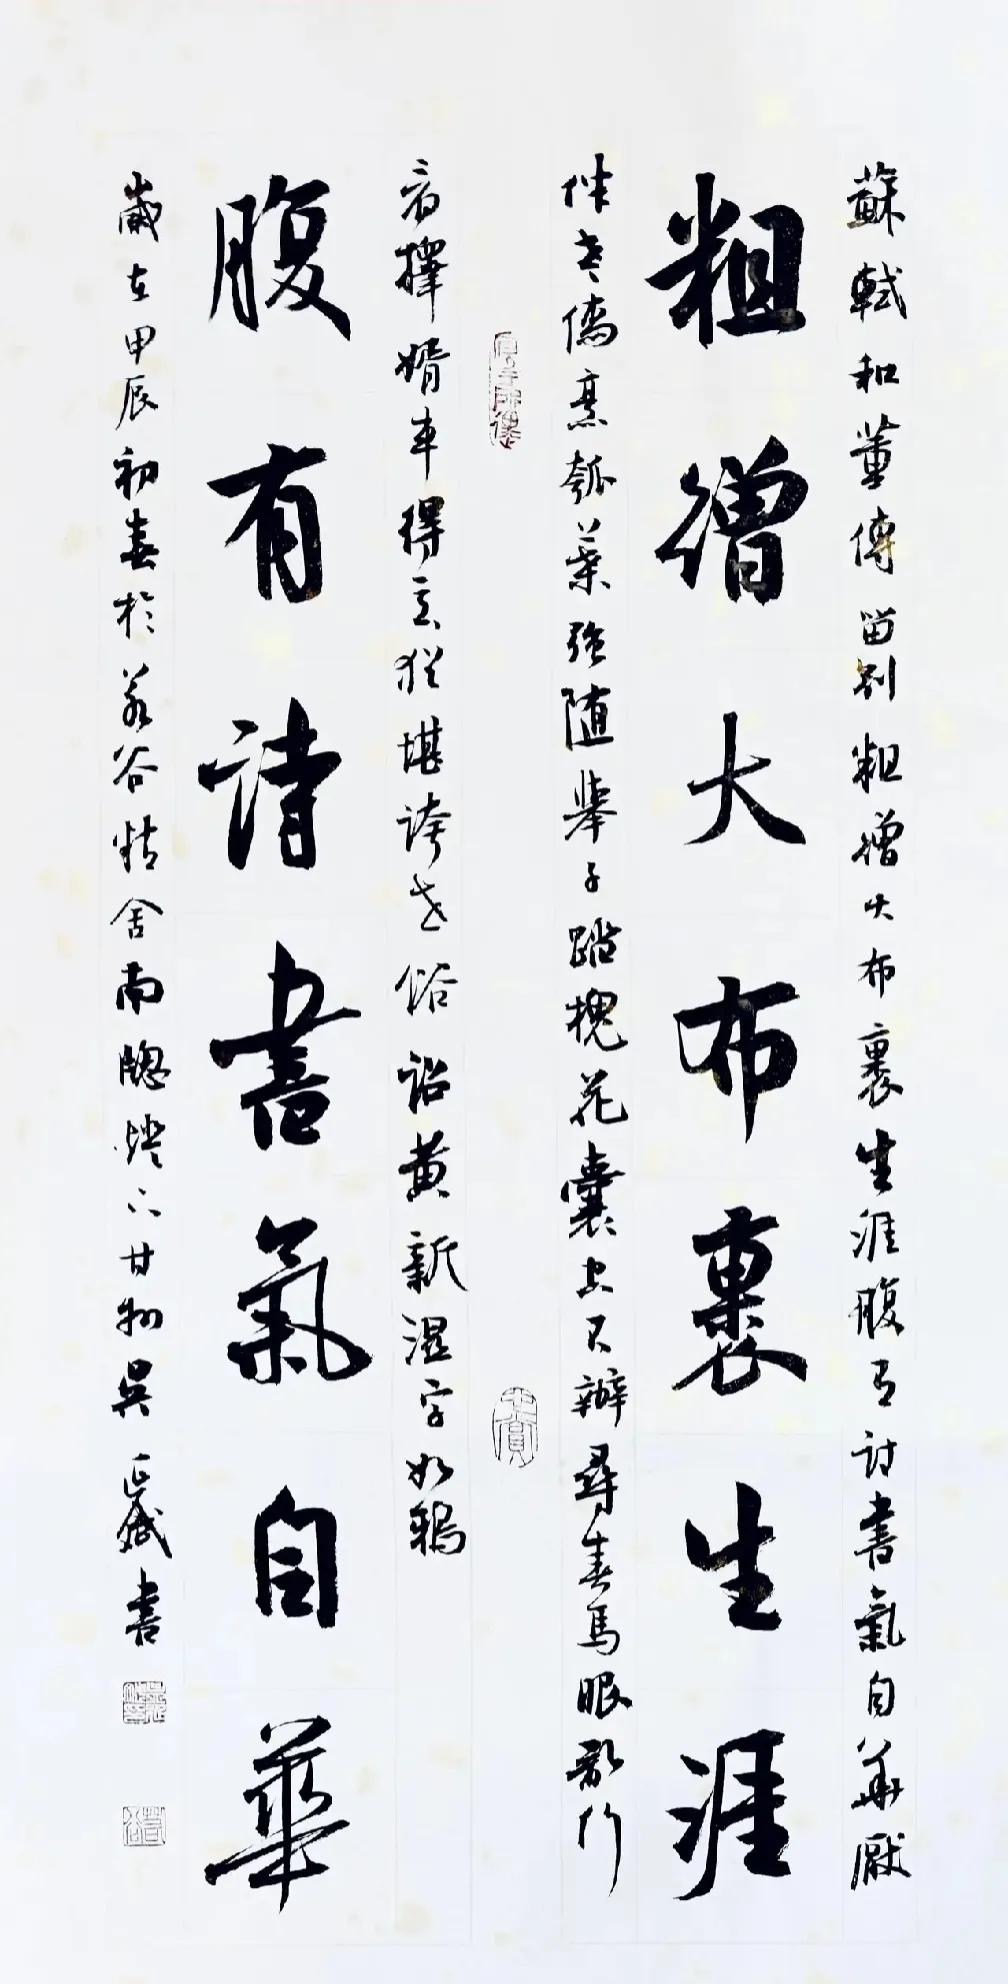 蘇軾和董傳留別粗繒大布裹生涯腹有詩書氣自華厭
粗繒大布裹生涯
伴老儒烹瓠葉強隨舉子踏槐花囊空不辦尋春馬眼亂行
看擇婿車得意猶堪誇世俗詔黃新濕字如鴉
腹有詩書氣自華
歲在甲辰初春於谷精舍南牕燈下吳書